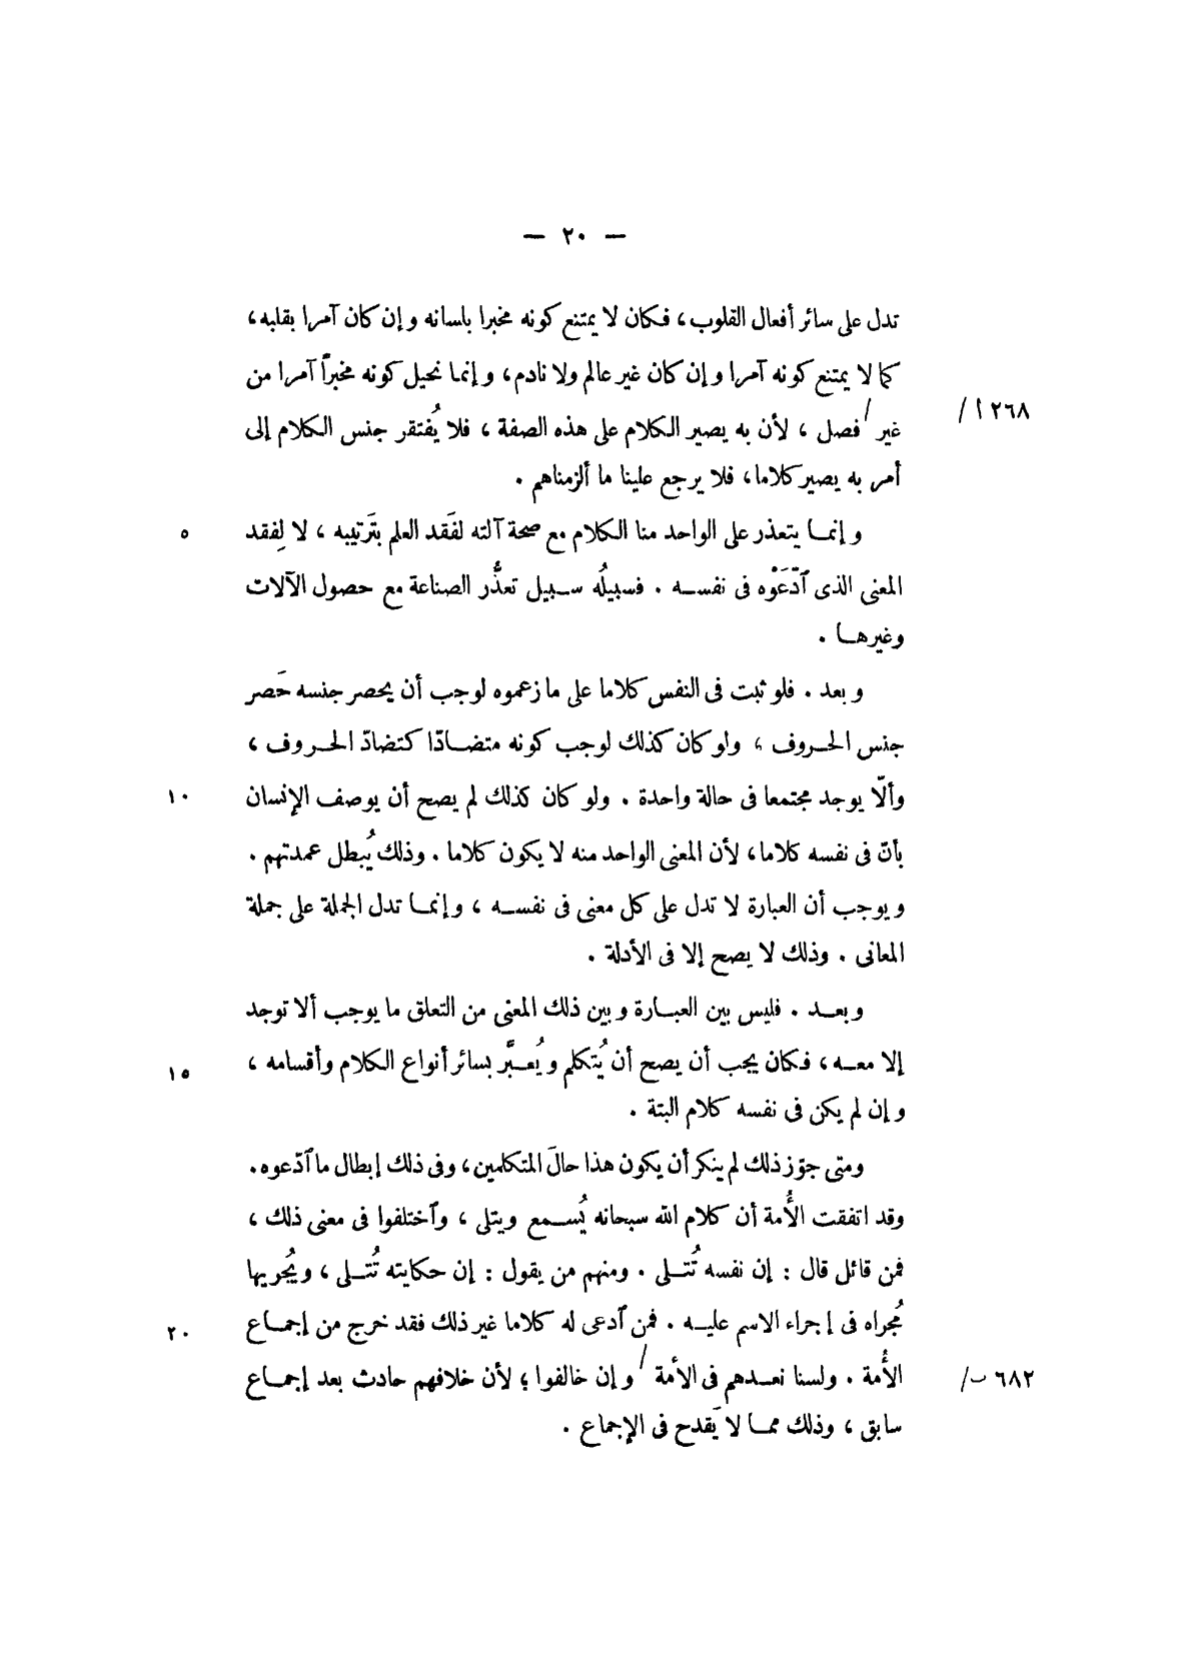 — ٢٠ —
تدل على سائر أفعال القلوب، فكان لا يمتنع كونه مخبرا بلسانه وإن كان آمرا بقلبه،
كما لا يمتنع كونه آمرا وإن كان غير عالم ولا نادم، وإنما نحيل كونه مخبراً آمرا من
غير / فصل ، لأن به يصير الكلام على هذه الصفة ، فلا يُفتقر جنس الكلام إلى
٢٦٨ ا /
أمر به يصير كلاما، فلا يرجع علينا ما ألزمناهم .
وإنما يتعذر على الواحد منا الكلام مع صحة آلته لفَقد العلم بتَرتيبه ، لا لِفقد
٥
المعنى الذى ٱدّعَوْه فى نفسه . فسبيلُه سبيل تعذُّر الصناعة مع حصول الآلات
وغيرها .
وبعد . فلو ثبت فى النفس كلاما على ما زعموه لوجب أن يحصر جنسه حَصر
جنس الحروف ، ولو كان كذلك لوجب كونه متضادّا كتضادّ الحروف ،
وألّا يوجد مجتمعا فى حالة واحدة . ولو كان كذلك لم يصح أن يوصف الإنسان
١٠
بأنّ فى نفسه كلاما، لأن المعنى الواحد منه لا يكون كلاما . وذلك يُبطل عمدتهم .
ويوجب أن العبارة لا تدل على كل معنى فى نفسه ، وإنما تدل الجملة على جملة
المعانى . وذلك لا يصح إلا فى الأدلة .
وبعد . فليس بين العبارة وبين ذلك المعنى من التعلق ما يوجب ألا توجد
إلا معه ، فكان يجب أن يصح أن يُتكلم ويُعبَّر بسائر أنواع الكلام وأقسامه ،
١٥
وإن لم يكن فى نفسه كلام البتة .
ومتى جوّز ذلك لم ينكر أن يكون هذا حالَ المتكلمين، وفى ذلك إبطال ما ٱدّعوه.
وقد اتفقت الأُمة أن كلام الله سبحانه يُسمع ويتلى ، وٱختلفوا فى معنى ذلك ،
فمن قائل قال : إن نفسه تُتلى . ومنهم من يقول : إن حكايته تُتلى ، ويُجريها
مُجراه فى إجراء الاسم عليه . فمن ٱدعى له كلاما غير ذلك فقد خرج من إجماع
٢٠
الأُمة . ولسنا نعدهم فى الأمة / وإن خالفوا ؛ لأن خلافهم حادث بعد إجماع
٦٨٢ ب /
سابق ، وذلك مما لا يَقدح فى الإجماع .